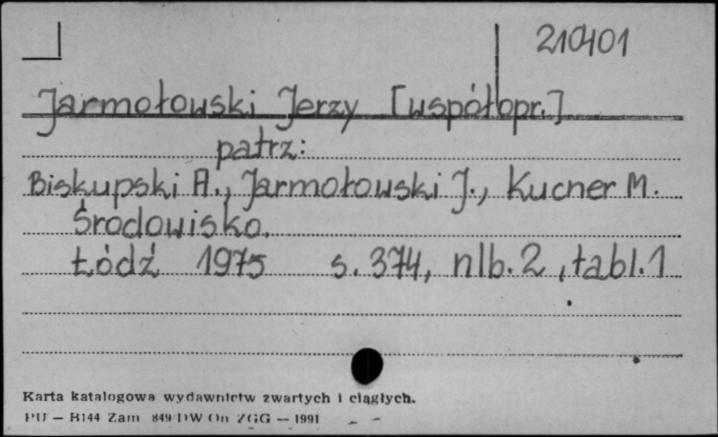 210401
Jarmołowski Jerzy [współopr.]
patrz:
Biskupski A., Jarmołowski J., Kucner M.
Środowisko.
Łódź 1975 s. 374, nlb. 2, tabl. 1
Karta katalogowa wydawnictw zwartych i ciągłych.
PU — B144 Zam 849 DW On ZGG — 1991